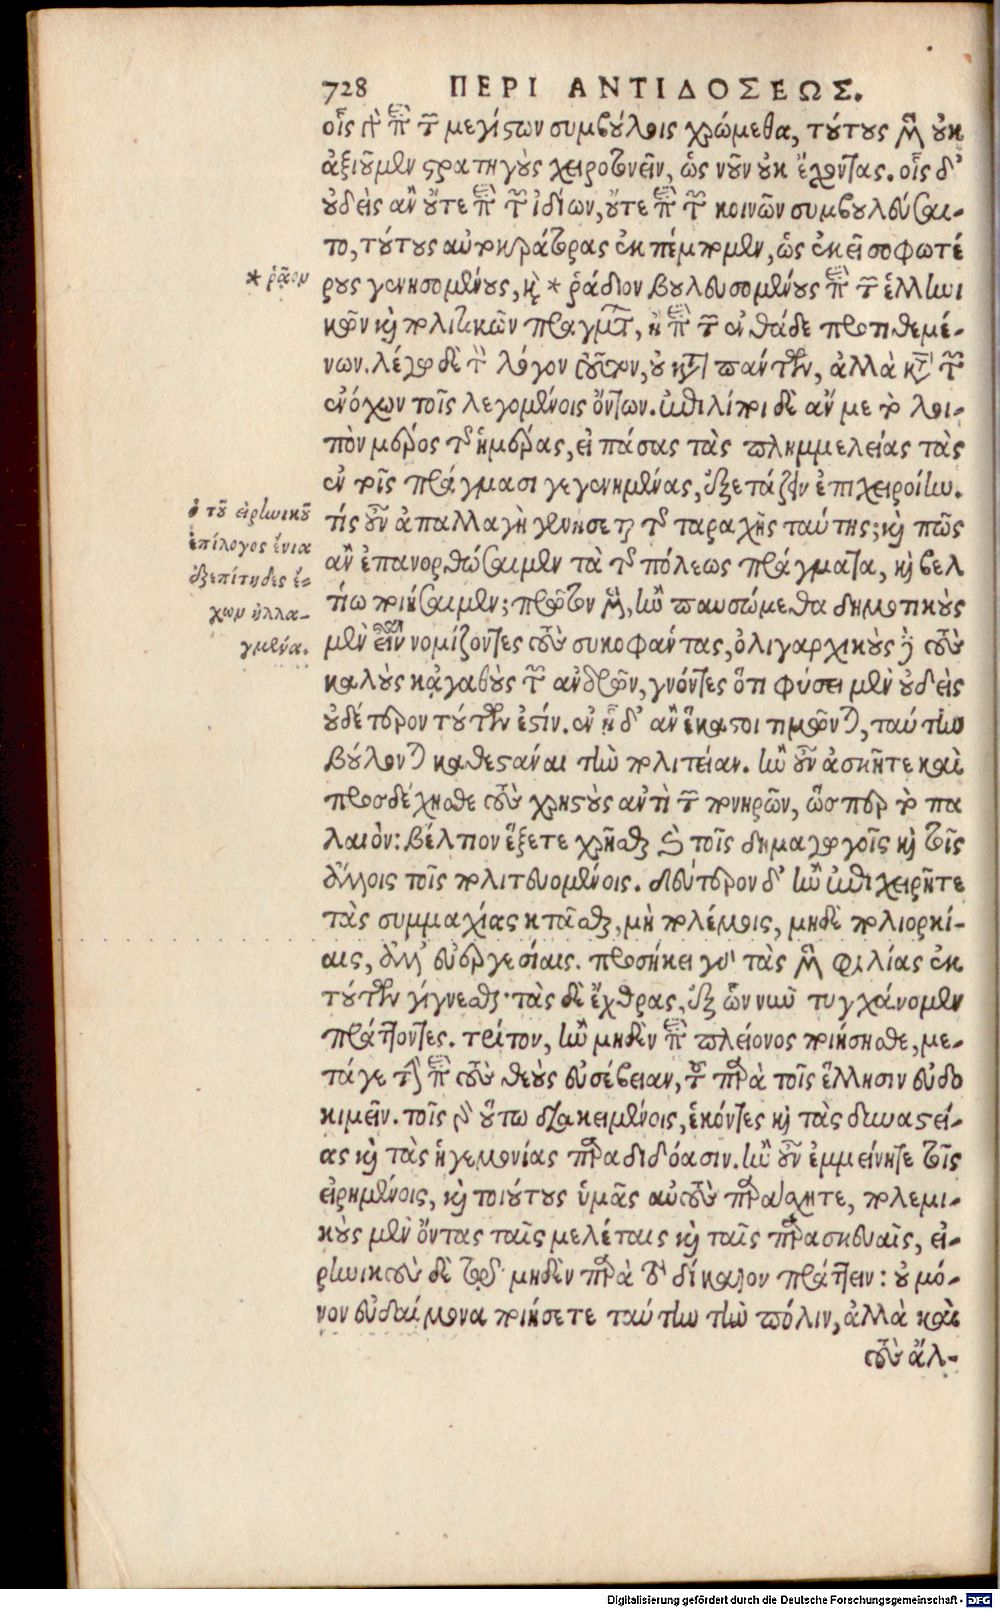 728 ΠΕΡΙ ΑΝΤΙΔΟΣΕΩΣ.
οἷς γὰρ περὶ τῶν μεγίστων συμβούλοις χρώμεθα, τούτους μὲν οὐκ
ἀξιοῦμεν στρατηγοὺς χειροτονεῖν, ὡς νοῦν οὐκ ἔχοντας. οἷς δ'
οὐδεὶς ἂν οὔτε περὶ τῶν ἰδίων, οὔτε περὶ τῶν κοινῶν συμβουλεύσαι-
το, τούτους αὐτοκράτορας ἐκπέμπομεν, ὡς ἐκεῖ σοφωτέ
* ῥᾷον
ρους γενησομένους, καὶ * ῥᾴδιον βουλευσομένους περὶ τῶν ἑλληνι
κῶν καὶ πολιτικῶν πραγμάτων, ἢ περὶ τῶν ἐνθάδε προτιθεμέ-
νων. λέγω δὲ τὸν λόγον τοῦτον, οὐ κατὰ πάντων, ἀλλὰ κατὰ τῶν
ἐνόχων τοῖς λεγομένοις ὄντων. ἐπιλίποι δὲ ἄν με τὸ λοι-
πὸν μέρος τῆς ἡμέρας, εἰ πάσας τὰς πλημμελείας τὰς
ἐν τοῖς πράγμασι γεγενημένας, ἐξετάζειν ἐπιχειροίην.
ὁ τοῦ εἰρηνικοῦ
ἐπίλογος ἔνια
ἐξεπίτηδες ἔ-
χων ἠλλα-
γμένα.
τίς οὖν ἀπαλλαγὴ γενήσεται τῆς ταραχῆς ταύτης; καὶ πῶς
ἂν ἐπανορθώσαιμεν τὰ τῆς πόλεως πράγματα, καὶ βελ
τίω ποιήσαιμεν; πρῶτον μὲν, ἢν παυσώμεθα δημοτικοὺς
μὲν εἶναι νομίζοντες τοὺς συκοφάντας, ὀλιγαρχικοὺς δὲ τοὺς
καλοὺς κἀγαθοὺς τῶν ἀνδρῶν, γνόντες ὅτι φύσει μὲν οὐδεὶς
οὐδέτερον τούτων ἐστίν. ἐν ᾗ δ' ἂν ἕκαστοι τιμῶνται, ταύτην
βούλονται καθεστάναι τὴν πολιτείαν. ἢν οὖν ἀσκῆτε καὶ
προσδέχησθε τοὺς χρηστοὺς ἀντὶ τῶν πονηρῶν, ὥσπερ τὸ πα
λαιὸν: βέλτιον ἕξετε χρῆσθαι καὶ τοῖς δημαγωγοῖς καὶ τοῖς
ἄλλοις τοῖς πολιτευομένοις. δεύτερον δ' ἢν ἐπιχειρῆτε
τὰς συμμαχίας κτᾶσθαι, μὴ πολέμοις, μηδὲ πολιορκί-
αις, ἀλλ' εὐεργεσίαις. προσήκει γὰρ τὰς μὲν φιλίας ἐκ
τούτων γίγνεσθαι· τὰς δὲ ἔχθρας, ἐξ ὧν νυνὶ τυγχάνομεν
πράττοντες. τρίτον, ἢν μηδὲν περὶ πλείονος ποιήσησθε, με-
τά γε τὴν περὶ τοὺς θεοὺς εὐσέβειαν, τοῦ παρὰ τοῖς ἕλλησιν εὐδο
κιμεῖν. τοῖς γὰρ οὕτω διακειμένοις, ἑκόντες καὶ τὰς δυναστεί-
ας καὶ τὰς ἡγεμονίας παραδιδόασιν. ἢν οὖν ἐμμείνητε τοῖς
εἰρημένοις, καὶ τοιούτους ὑμᾶς αὐτοὺς παράσχητε, πολεμι-
κοὺς μὲν ὄντας ταῖς μελέταις καὶ ταῖς παρασκευαῖς, εἰ-
ρηνικοὺς δὲ τῷ μηδὲν παρὰ τὸ δίκαιον πράττειν: οὐ μό-
νον εὐδαίμονα ποιήσετε ταύτην τὴν πόλιν, ἀλλὰ καὶ
τοὺς ἄλ-
Digitalisierung gefördert durch die Deutsche Forschungsgemeinschaft - DFG